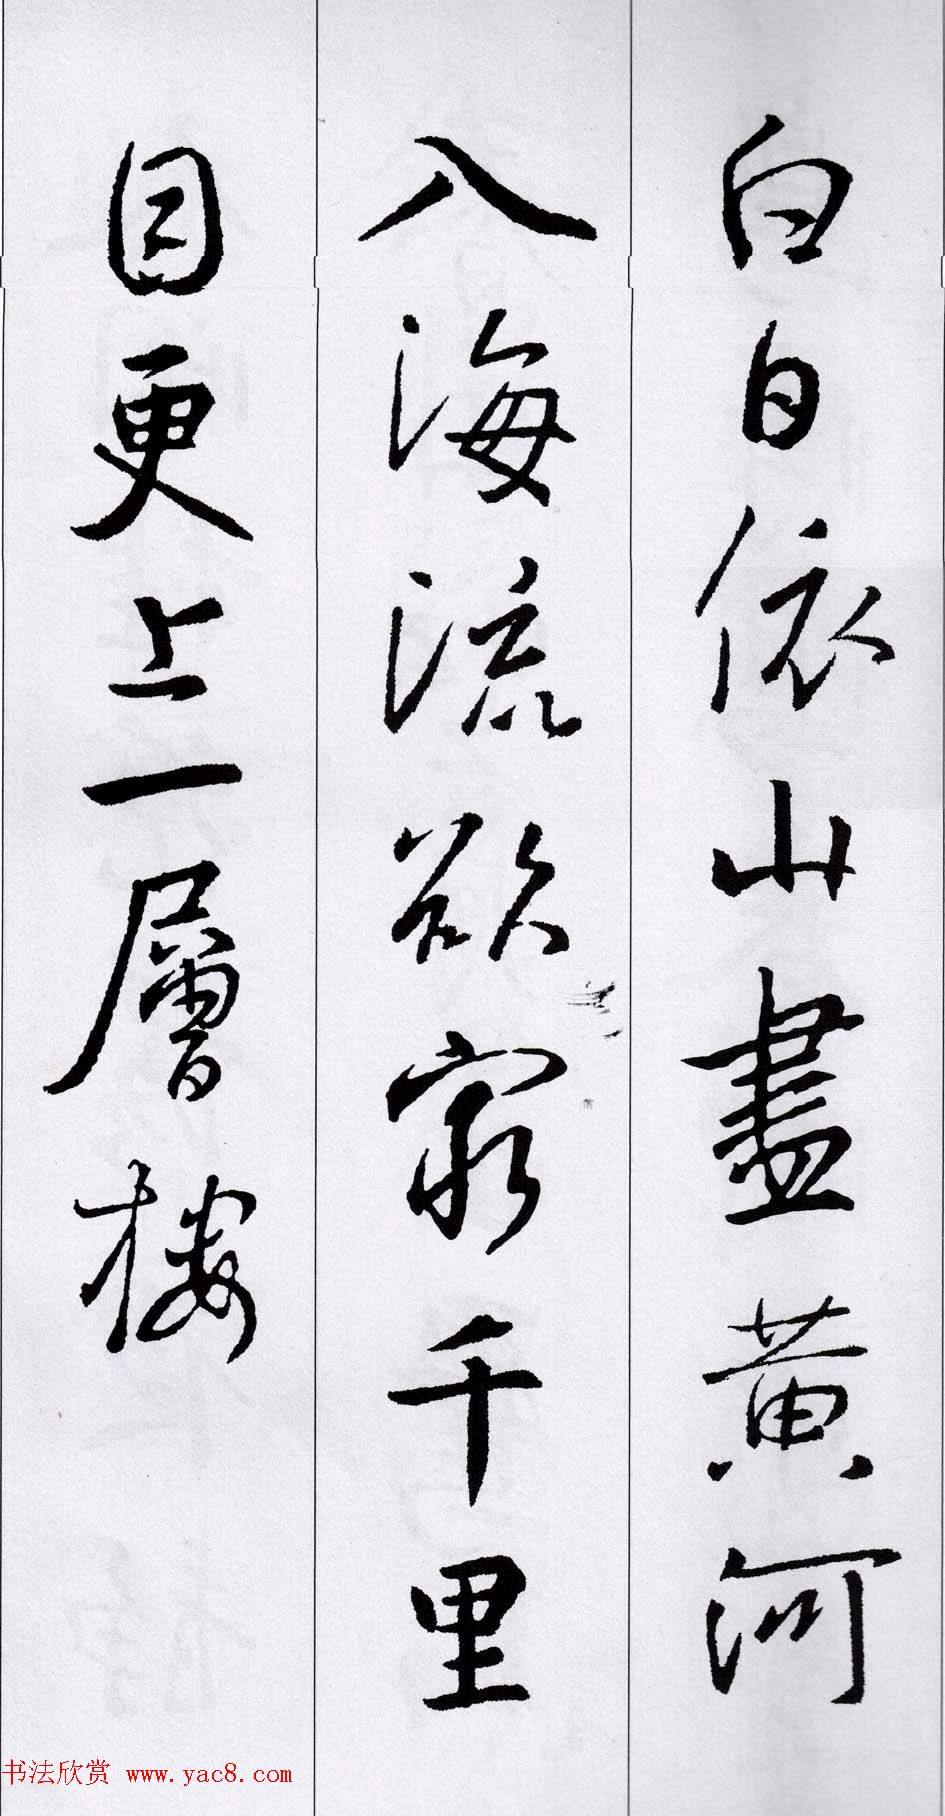 白日依山盡黄河
入海流欲窮千里
目更上一層樓
书法欣赏 www.yac8.com